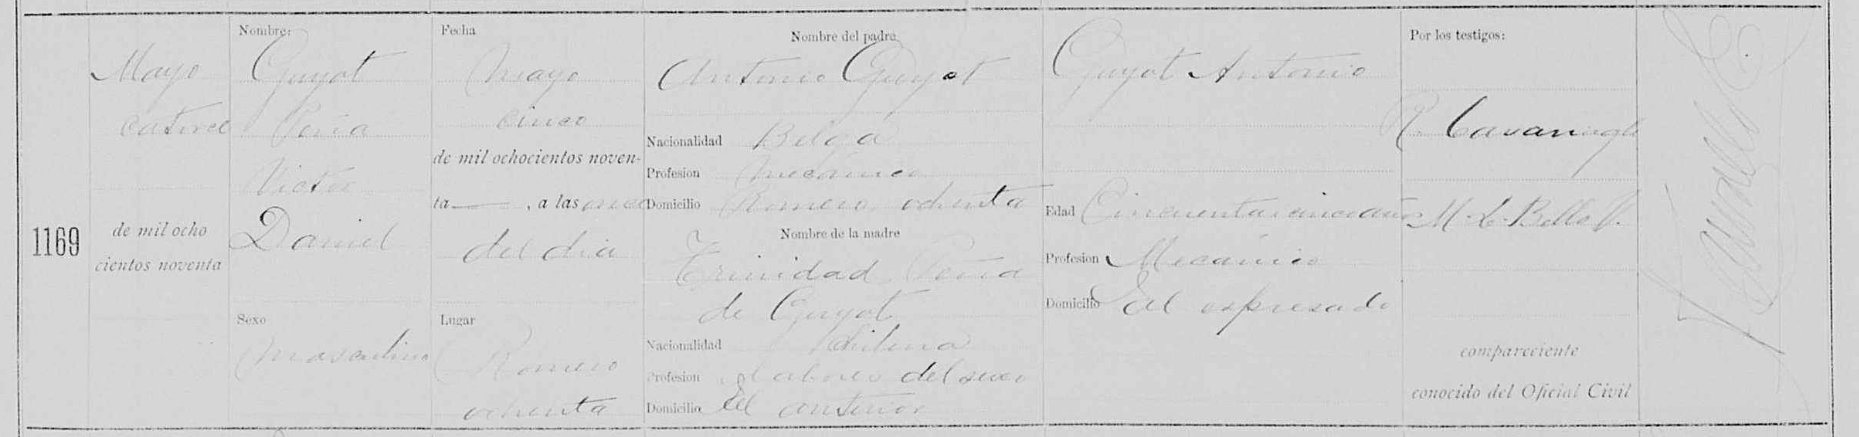 1169
Mayo
catorce
de mil ocho
cientos noventa
Nombre:
Guyot
Peña
Victor
Daniel
Sexo
Masculino
Fecha
Mayo
cinco
de mil ochocientos noven-
ta ——, a las once
del dia
Lugar
Romero
ochenta
Nombre del padre
Antonio Guyot
Nacionalidad Belga
Profesion Mecánico
Domicilio Romero, ochenta
Nombre de la madre
Trinidad Peña
de Guyot
Nacionalidad Chilena
Profesion Labores del sexo
Domicilio El anterior
Guyot Antonio
Edad Cincuenta i cinco años
Profesion Mecánico
Domicilio El espresado
Por los testigos:
R. Cavanagh
M. L. Bello
compareciente
conocido del Oficial Civil